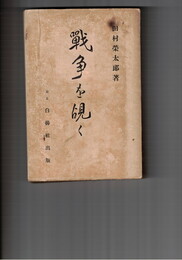 田村榮太郎著
戰争を覗く
東京 白揚社出版